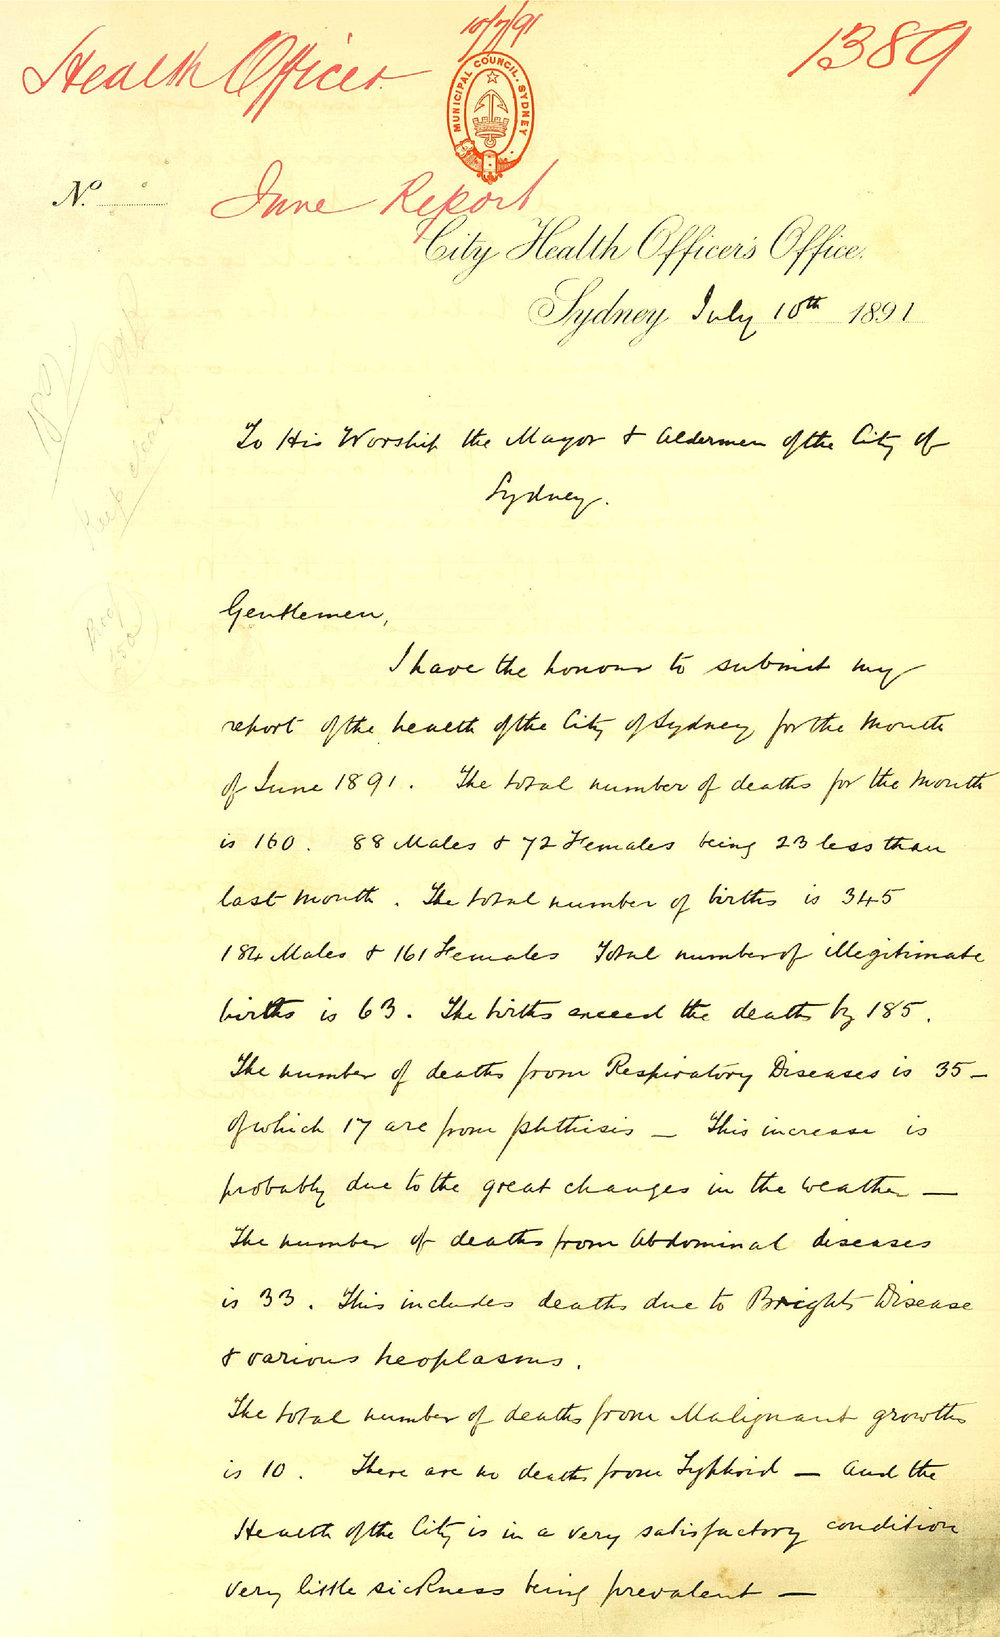 10/7/91
1389
Health Officer.
MUNICIPAL COUNCIL. SYDNEY
No.
June Report
City Health Officer's Office.
Sydney July 10th 1891
To His Worship the Mayor & Aldermen of the City of
Sydney.
Gentlemen,
I have the honour to submit my
report of the health of the City of Sydney for the Month
of June 1891. The total number of deaths for the Month
is 160. 88 Males & 72 Females being 23 less than
last month. The total number of births is 345
184 Males & 161 Females Total number of illegitimate
births is 63. The births exceed the deaths by 185.
The number of deaths from Respiratory Diseases is 35 –
of which 17 are from phthisis – This increase is
probably due to the great changes in the weather –
The number of deaths from Abdominal diseases
is 33. This includes deaths due to Brights Disease
& various neoplasms.
The total number of deaths from Malignant growths
is 10. There are no deaths from Typhoid – And the
Health of the City is in a very satisfactory condition
very little sickness being prevalent –